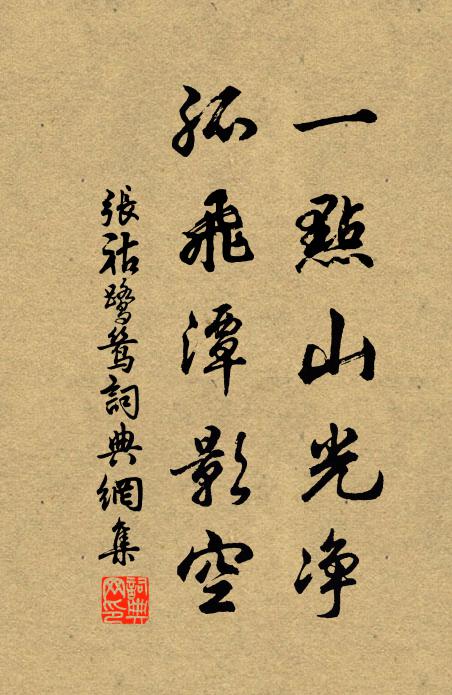 一點山光淨
孤飛潭影空
張祜鷺鷥詞典網集
詞典網印